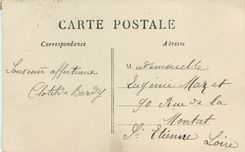 CARTE POSTALE
Correspondance
Adresse
Souvenir affectueux
Clotilde Bardy
Mademoiselle
Eugénie Mazet
90 Rue de la
Montat
St Etienne
Loire